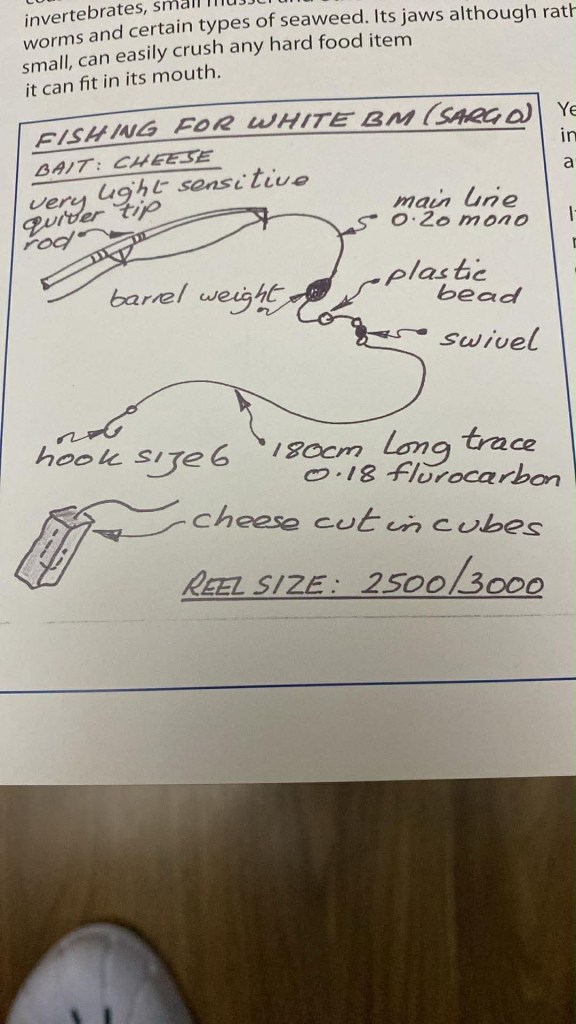 invertebrates, small
worms and certain types of seaweed. Its jaws although
small, can easily crush any hard food item
it can fit in its mouth.
FISHING FOR WHITE BM (SARGO)
BAIT: CHEESE
very light sensitive
quiver tip
rod
main line
0.20 mono
barrel weight
plastic
bead
swivel
hook size 6
180cm long trace
0.18 flurocarbon
cheese cut in cubes
REEL SIZE: 2500/3000